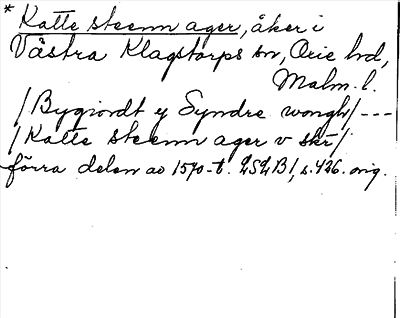 * Katte steenn ager, åker i
Västra Klagstorps sn, Oxie hd,
Malm. l.
/Bygiordt y Syndre wongh/ ---
/Katte steenn ager v skr/
förra delen av 1570-t. LSLB1, s. 426. orig.